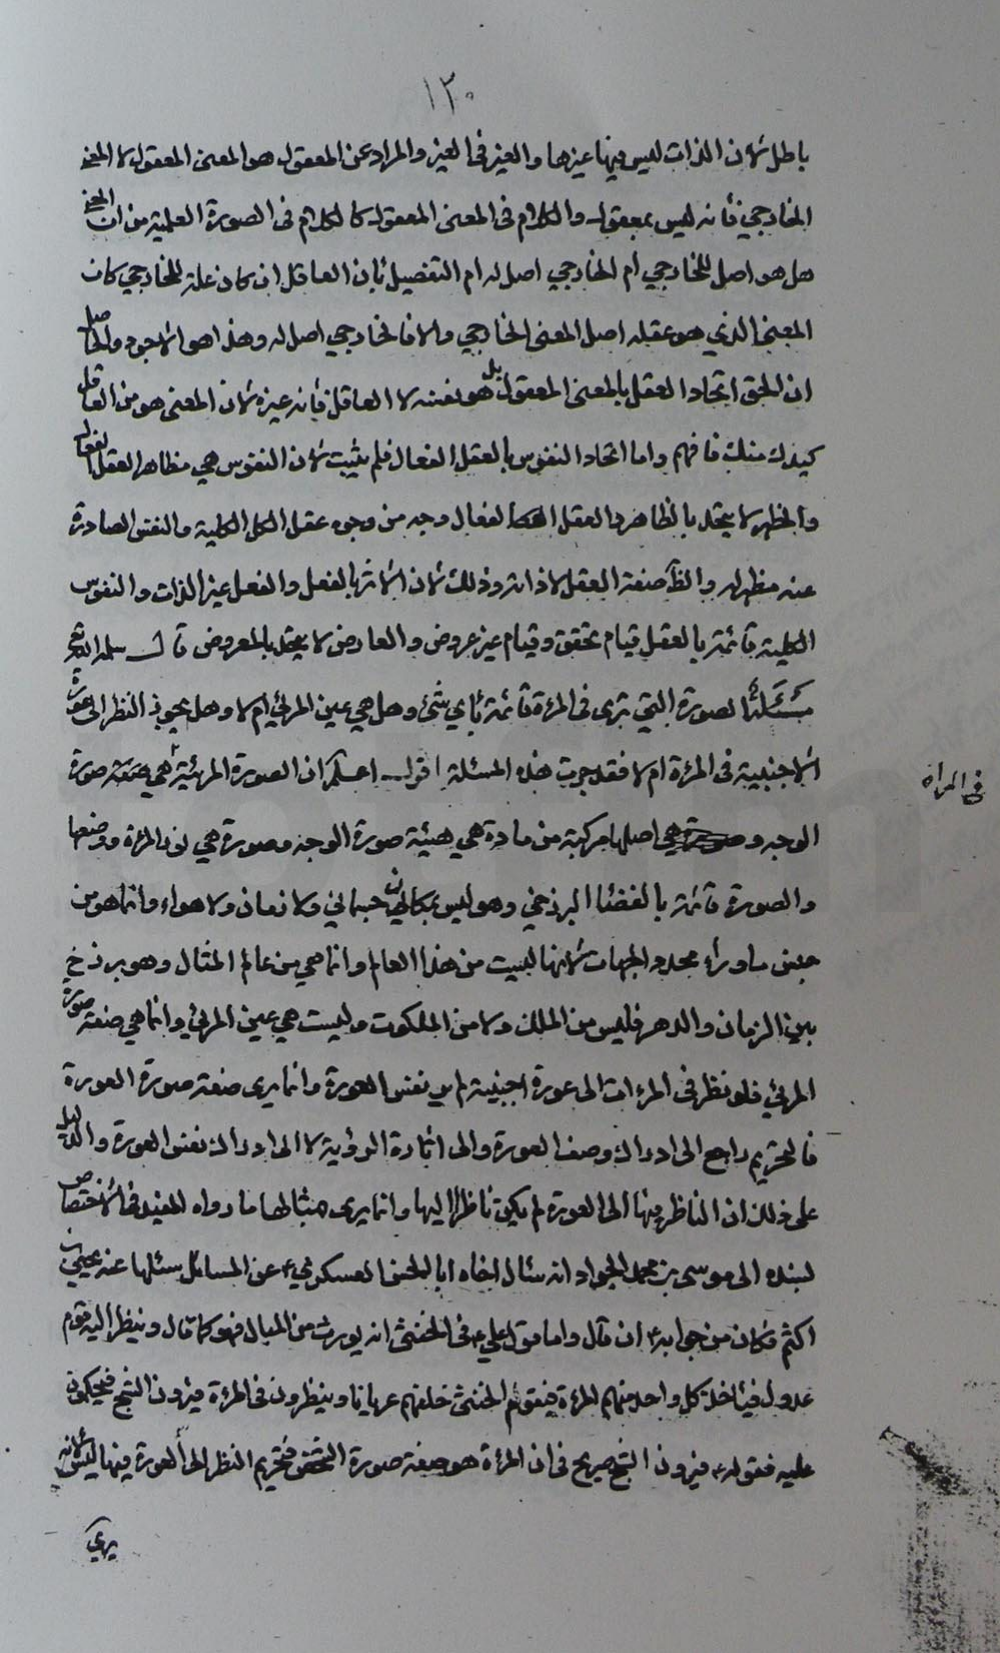 ١٢٠
باطل لان الذات ليس فيها غيرها والغير في الغير والمراد عن المعقول هو المعنى المعقول لا المعنى
الخارجي فانه ليس بمعقول والكلام في المعنى المعقول كالكلام في الصورة العلمية من ان المعنى
هل هو اصل للخارجي ام الخارجي اصل له ام التفصيل بان العاقل ان كان علة للخارجي كان
المعنى الذي هو عقله اصل المعنى الخارجي والا فالخارجي اصل له وهذا هو الاجود والحاصل
ان الحق اتحاد العقل بالمعنى المعقول بل هو نفسه لا العاقل فانه غيره لان المعنى هو من العاقل
كيدك منك فافهم واما اتحاد النفوس بالعقل الفعال فلم يثبت لان النفوس هي مظاهر العقل الفعال
والمظهر لا يتحد بالظاهر والعقل الفعال وجه من وجوه عقل الكل الكلية والنفس الصادرة
عنه مظهر له والظ صفة العقل لا ذاته وذلك لان الاثر بالفعل والفعل غير الذات والنفوس
الكلية قائمة بالعقل قيام تحقق وقيام غير عروض والعارض لا يتحد بالمعروض قال سلمه الله تع
مسئلة الصورة التي ترى في المرءة قائمة باي شئ وهل هي عين المرئي ام لا وهل يجوز النظر الى عورة
الاجنبية في المرءة ام لا فقد جرت هذه المسئلة اقول اعلم ان الصورة المرئية هي صفة صورة
في المراة
الوجه و هي اصلها مركبة من مادة هي هيئة صورة الوجه وصورة هي لون المرءة ووضعها
والصورة قائمة بالفضاء البرزخي وهو ليس بمكان جسماني ولا زمان ولا هواء وانما هو من
جنس ماوراء محدد الجهات لانها ليست من هذا العالم وانما هي من عالم المثال وهو برزخ
بين الزمان والدهر فليس من الملك ولا من الملكوت وليست هي عين المرئي وانما هي صفة صورة
المرئي فلو نظر في المرءات الى عورة اجنبية لم ير نفس العورة وانما يرى صفة صورة العورة
فالتحريم راجع الى ادراك وصف العورة والى اثارة الرؤية لا الى ادراك نفس العورة والدليل
على ذلك ان الناظر فيها الى العورة لم يكن ناظرا اليها وانما يرى مثالها ما رواه المفيد في الاختصاص
بسنده الى موسى بن محمد الجواد انه سئال اخاه ابا الحسن العسكري ع عن المسائل سئلها عنه يحيى بن
اكثم فكان من جوابه ع ان قال واما قول علي ع في الخنثى انه يورث من المبال فهو كما قال وينظر اليه قوم
عدول فياخذ كل واحد منهم المرءة فيقوم الخنثى خلفهم عريانا وينظرون في المرءة فيرون الشبح فيحكمون
عليه فقوله ع فيرون الشبح صريح في ان المرءة هو صفة صورة الشخص فتحريم النظر الى العورة فيها ليس لانه
يرى